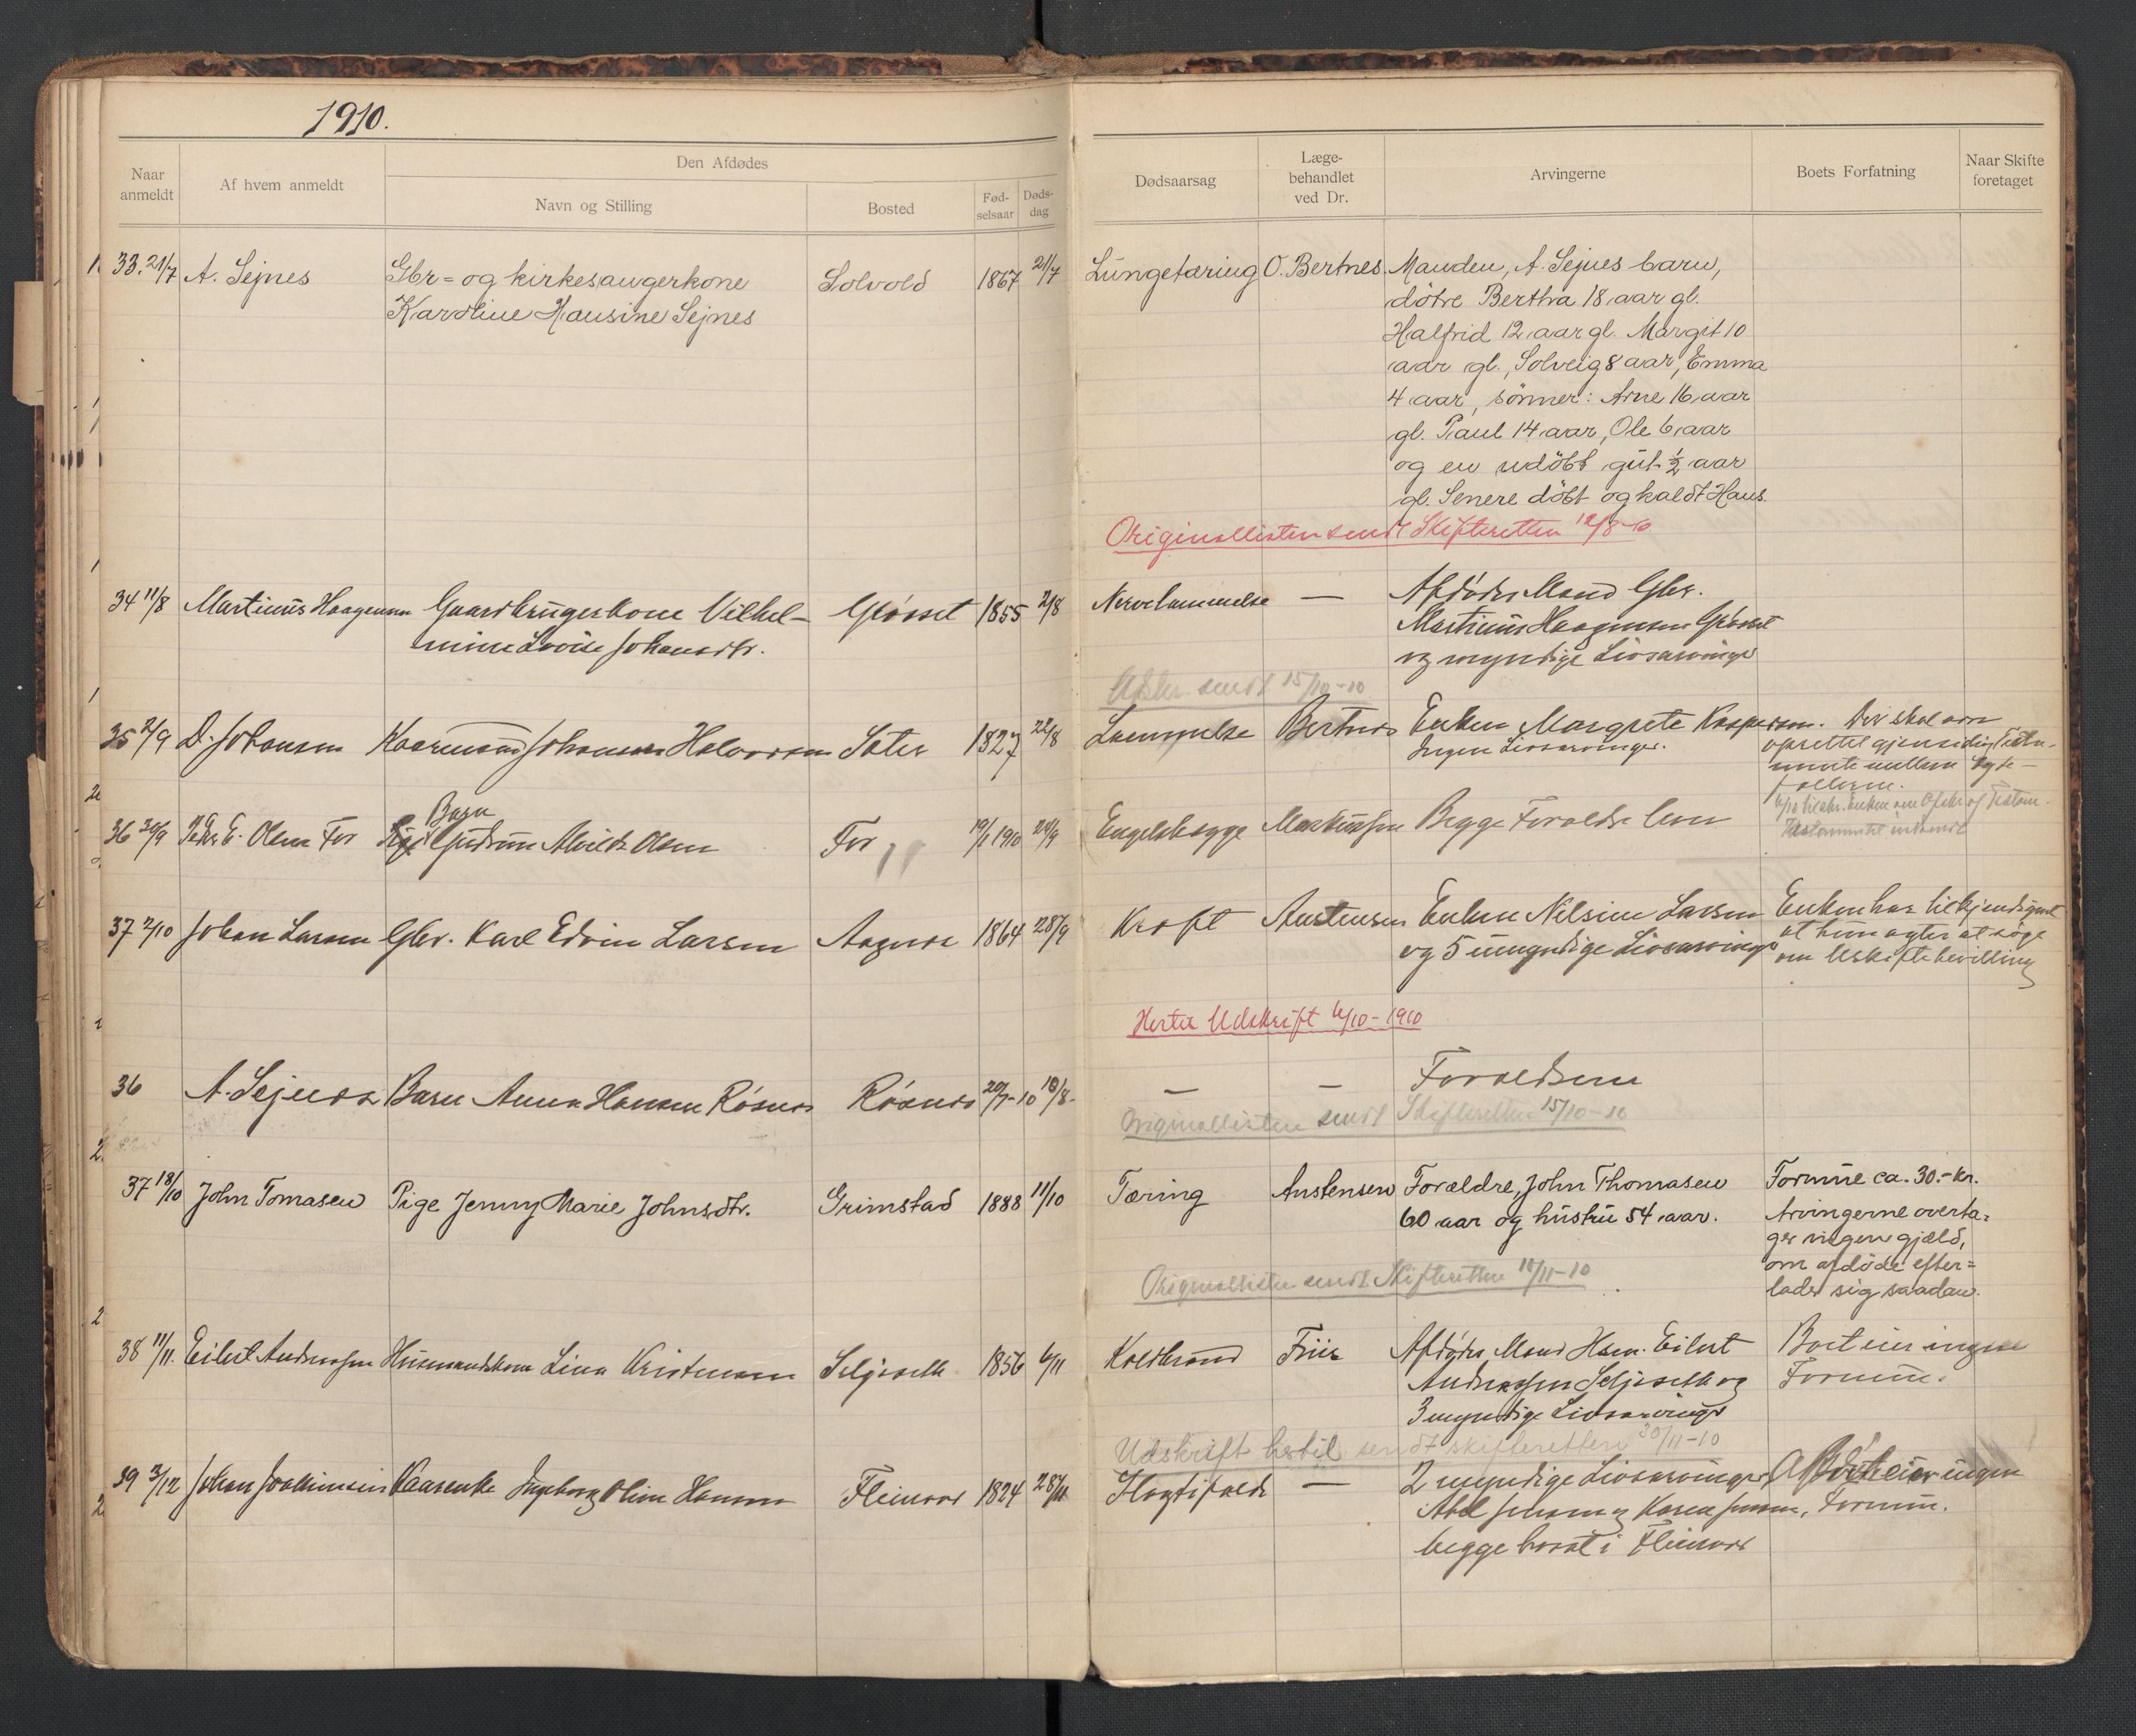 1910.
Naar anmeldt
Af hvem anmeldt
Den Afdødes
Navn og Stilling
Bosted
Fød-selsaar
Døds-dag
Dødsaarsag
Læge-behandlet ved Dr.
Arvingerne
Boets Forfatning
Naar Skifte foretaget
33. 21/7 A. Sejnes Gbr = og kirkesangerkone Solvold 1867 21/7 Lungetæring O. Bertnes. Manden, A. Sejnes barn,
Karoline Hansine Sejnes døtre Bertha 18 aar gl.
Halfrid 12 aar gl. Margit 10
aar gl., Solveig 8 aar, Emma
4 aar, sønner: Arne 16 aar
gl. Paul 14 aar, Ole 6 aar
og en udøbt gut ½ aar
gl. Senere døbt og kaldt Hans.
Originallisten sendt Skifteretten 12/8-10
34 11/8 Martinus Haagensen Gaardbrugerkone Vilhel- Gløsset 1855 2/8 Nervelammelse — Afdødes Mand Gbr.
mine Lovise Johansdtr. Martinus Haagensen Gløsset
og myndige Livsarvinger
Afskr. sendt 15/10-10
35 2/9 D. Johansen Kaarmand Johannes Halvorsen Sæter 1827 22/8 Lammelse Bertnes Enken Margrete Kaspersen. Der skal være
Ingen Livsarvinger. oprettet gjensidig Testa-
mente mellem Ægte-
fællerne.
Testamentet indsendt
36 29/9 Peder E. Olsen For Pige Barn Gudrun Alvilde Olsen For 19/1 1910 24/9 Engelsksyge Markussen Begge Forældre lever
37 2/10 Johan Larsen Gbr. Karl Edvin Larsen Aagnes 1864 28/9 Kræft Austensen Enken Nelsine Larsen Enken har tilkjendegivet
og 5 umyndige Livsarvinger at hun agter at søge
om Uskiftebevilling
Hertil Udskrift 6/10-1910
36 A. Sejnes Barn Anna Hansen Røsnes Røsnes 20/7-10 18/8- — — Forældrene
Originallisten sendt Skifteretten 15/10-10
37 18/10 John Tomasen Pige Jenny Marie Johnsdtr. Grimstad 1888 11/10 Tæring Austensen Forældre, John Thomasen Formue ca. 30.- kr.
60 aar og hustru 54 aar. Arvingerne overta=
ger ingen gjæld,
om afdøde efter=
lader sig saadan.
Originallisten sendt Skifteretten 10/11-10
38 11/11. Eilert Andreassen Husmandskone Lina Kristensen Seljeseth 1856 6/11 Koldbrand Friis Afdødes Mand Hsm. Eilert Boet eier ingen
Andreassen Seljeseth og Formue.
3 myndige Livsarvinger
Udskrift hertil sendt skifteretten 30/11-10
39 3/12 Johan Joakimsen Kaarenke Ingeborg Oline Hansen Fleinvær 1824 28/11 — 2 myndige Livsarvinger Boet eier ingen
Abel Jensen og Karen Jensen, Formue.
begge bosat i Fleinvær